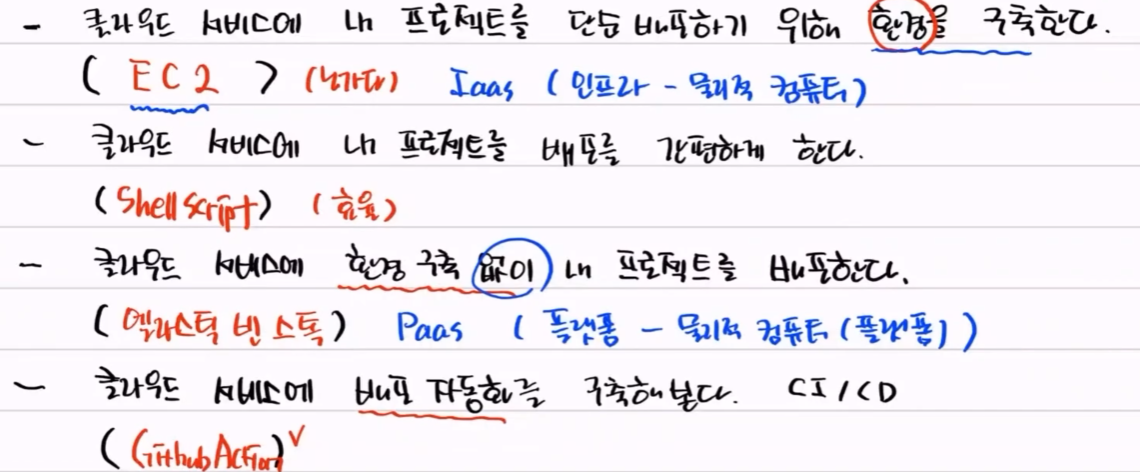 - 클라우드 서비스에 내 프로젝트를 단순 배포하기 위해 환경을 구축한다.
( EC2 ) (노가다) Iaas (인프라 - 물리적 컴퓨터)
- 클라우드 서비스에 내 프로젝트를 배포를 간편하게 한다.
(Shell Script) (효율)
- 클라우드 서비스에 환경 구축 없이 내 프로젝트를 배포한다.
(엘라스틱 빈스톡) Paas (플랫폼 - 물리적 컴퓨터(플랫폼))
- 클라우드 서비스에 배포 자동화를 구축해본다. CI/CD
(Github Action)